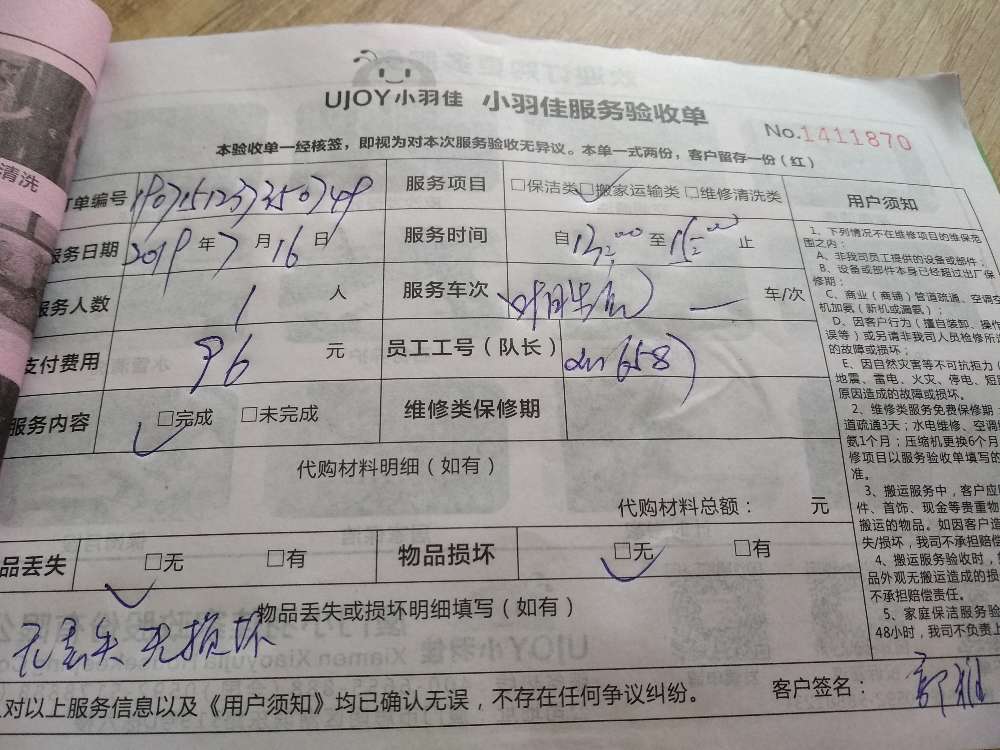 清洗
UJOY小羽佳 小羽佳服务验收单
No.1411870
本验收单一经核签，即视为对本次服务验收无异议。本单一式两份，客户留存一份（红）
订单编号 服务项目 □保洁类□搬家运输类□维修清洗类
服务日期 2019年7月16日 服务时间 自13:00至15:00止
服务人数 1人 服务车次 一 车/次
支付费用 96元 员工工号（队长）
服务内容 □完成 □未完成 维修类保修期
代购材料明细（如有）
代购材料总额： 元
品丢失 □无 □有 物品损坏 □无 □有
物品丢失或损坏明细填写（如有）
无丢失 无损坏
对以上服务信息以及《用户须知》均已确认无误，不存在任何争议纠纷。 客户签名：
用户须知
1、下列情况不在维修项目的维保范
围之内：
A、非我司员工提供的设备或部件；
B、设备或部件本身已经超过出厂保
修期；
C、商业（商铺）管道疏通、空调空
机加氨（新机或漏氨）；
D、因客户行为（擅自装卸、操作
误等）或另请非我司人员检修所造
的故障或损坏；
E、因自然灾害等不可抗拒力（
地震、雷电、火灾、停电、短路
原因造成的故障或损坏。
2、维修类服务免费保修期：
道疏通3天；水电维修、空调
氨1个月；压缩机更换6个月
修项目以服务验收单填写的
准。
3、搬运服务中，客户应
件、首饰、现金等贵重物
搬运的物品。如因客户造
失/损坏，我司不承担赔偿
4、搬运服务验收时，
品外观无搬运造成的损
不承担赔偿责任。
5、家庭保洁服务验
48小时，我司不负责上